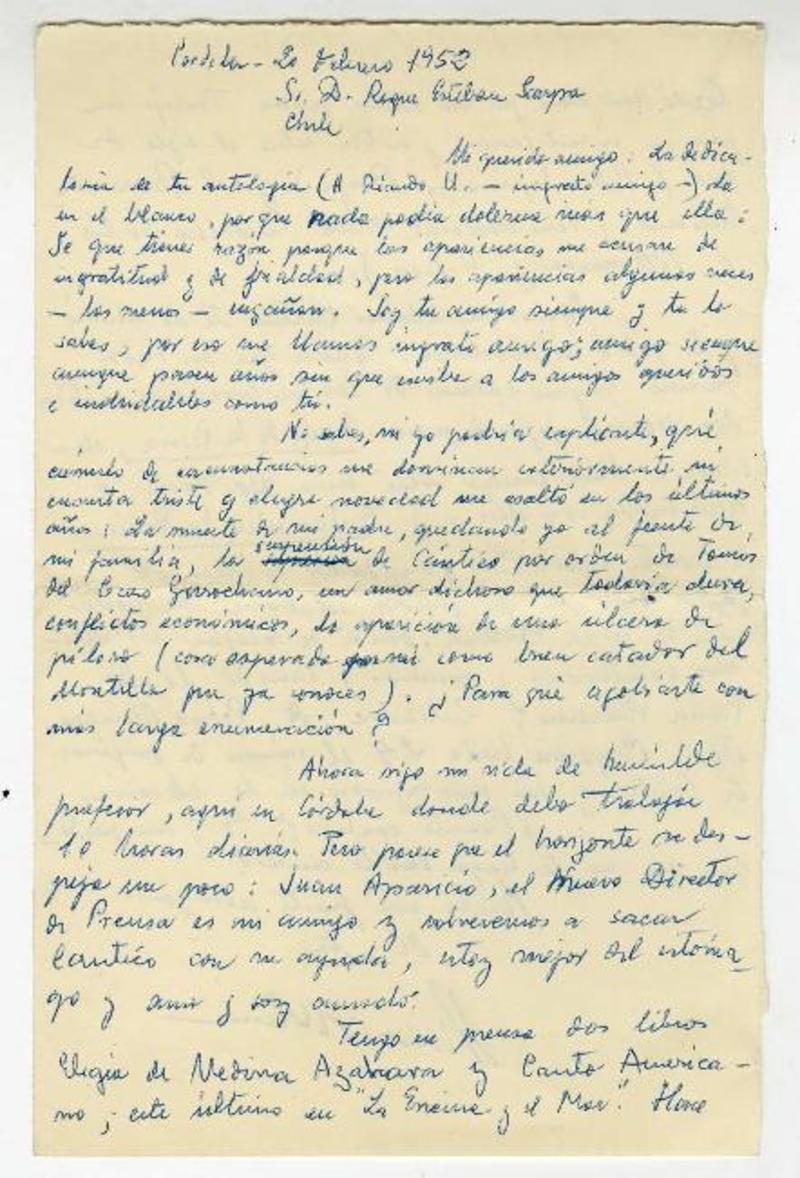 Córdoba - 20 Febrero 1952
Sr. D. Roque Esteban Scarpa
Chile
Mi querido amigo: La dedica-
toria de tu antología (A Ricardo U. - ingrato amigo -) da
en el blanco, porque nada podía dolerme mas que ella:
Se que tienes razón porque las apariencias me acusan de
ingratitud y de frialdad, pero las apariencias algunas veces
- las menos - engañan. Soy tu amigo siempre y tu lo
sabes, por eso me llamas ingrato amigo; amigo siempre
aunque pasen años sin que escriba a los amigos queridos
e indudables como tú.
No sabes, ni yo podría explicarte, qué
cúmulo de circunstancias me dominan exteriormente ni
cuanta triste y alegre novedad me asaltó en los últimos
años: La muerte de mi padre, quedando yo al frente de
mi familia, la suspensión de Cántico por orden de Tomás
del Cerro Gorrochano, un amor dichoso que todavía dura,
conflictos económicos, la aparición de una úlcera de
píloro (cosa esperada por mí como buen catador del
Montilla que ya conoces). ¿Para qué agobiarte con
más larga enumeración?
Ahora sigo mi vida de humilde
profesor, aquí en Córdoba donde debo trabajar
10 horas diarias. Pero parece que el horizonte se des-
peja un poco: Juan Aparicio, el Nuevo Director
de Prensa es mi amigo y volveremos a sacar
Cántico con su ayuda, estoy mejor del estóma-
go y amo y soy amado.
Tengo en prensa dos libros
Elegía de Medina Azahara y Canto America-
no; este último en "La Encina y el Mar". Hace